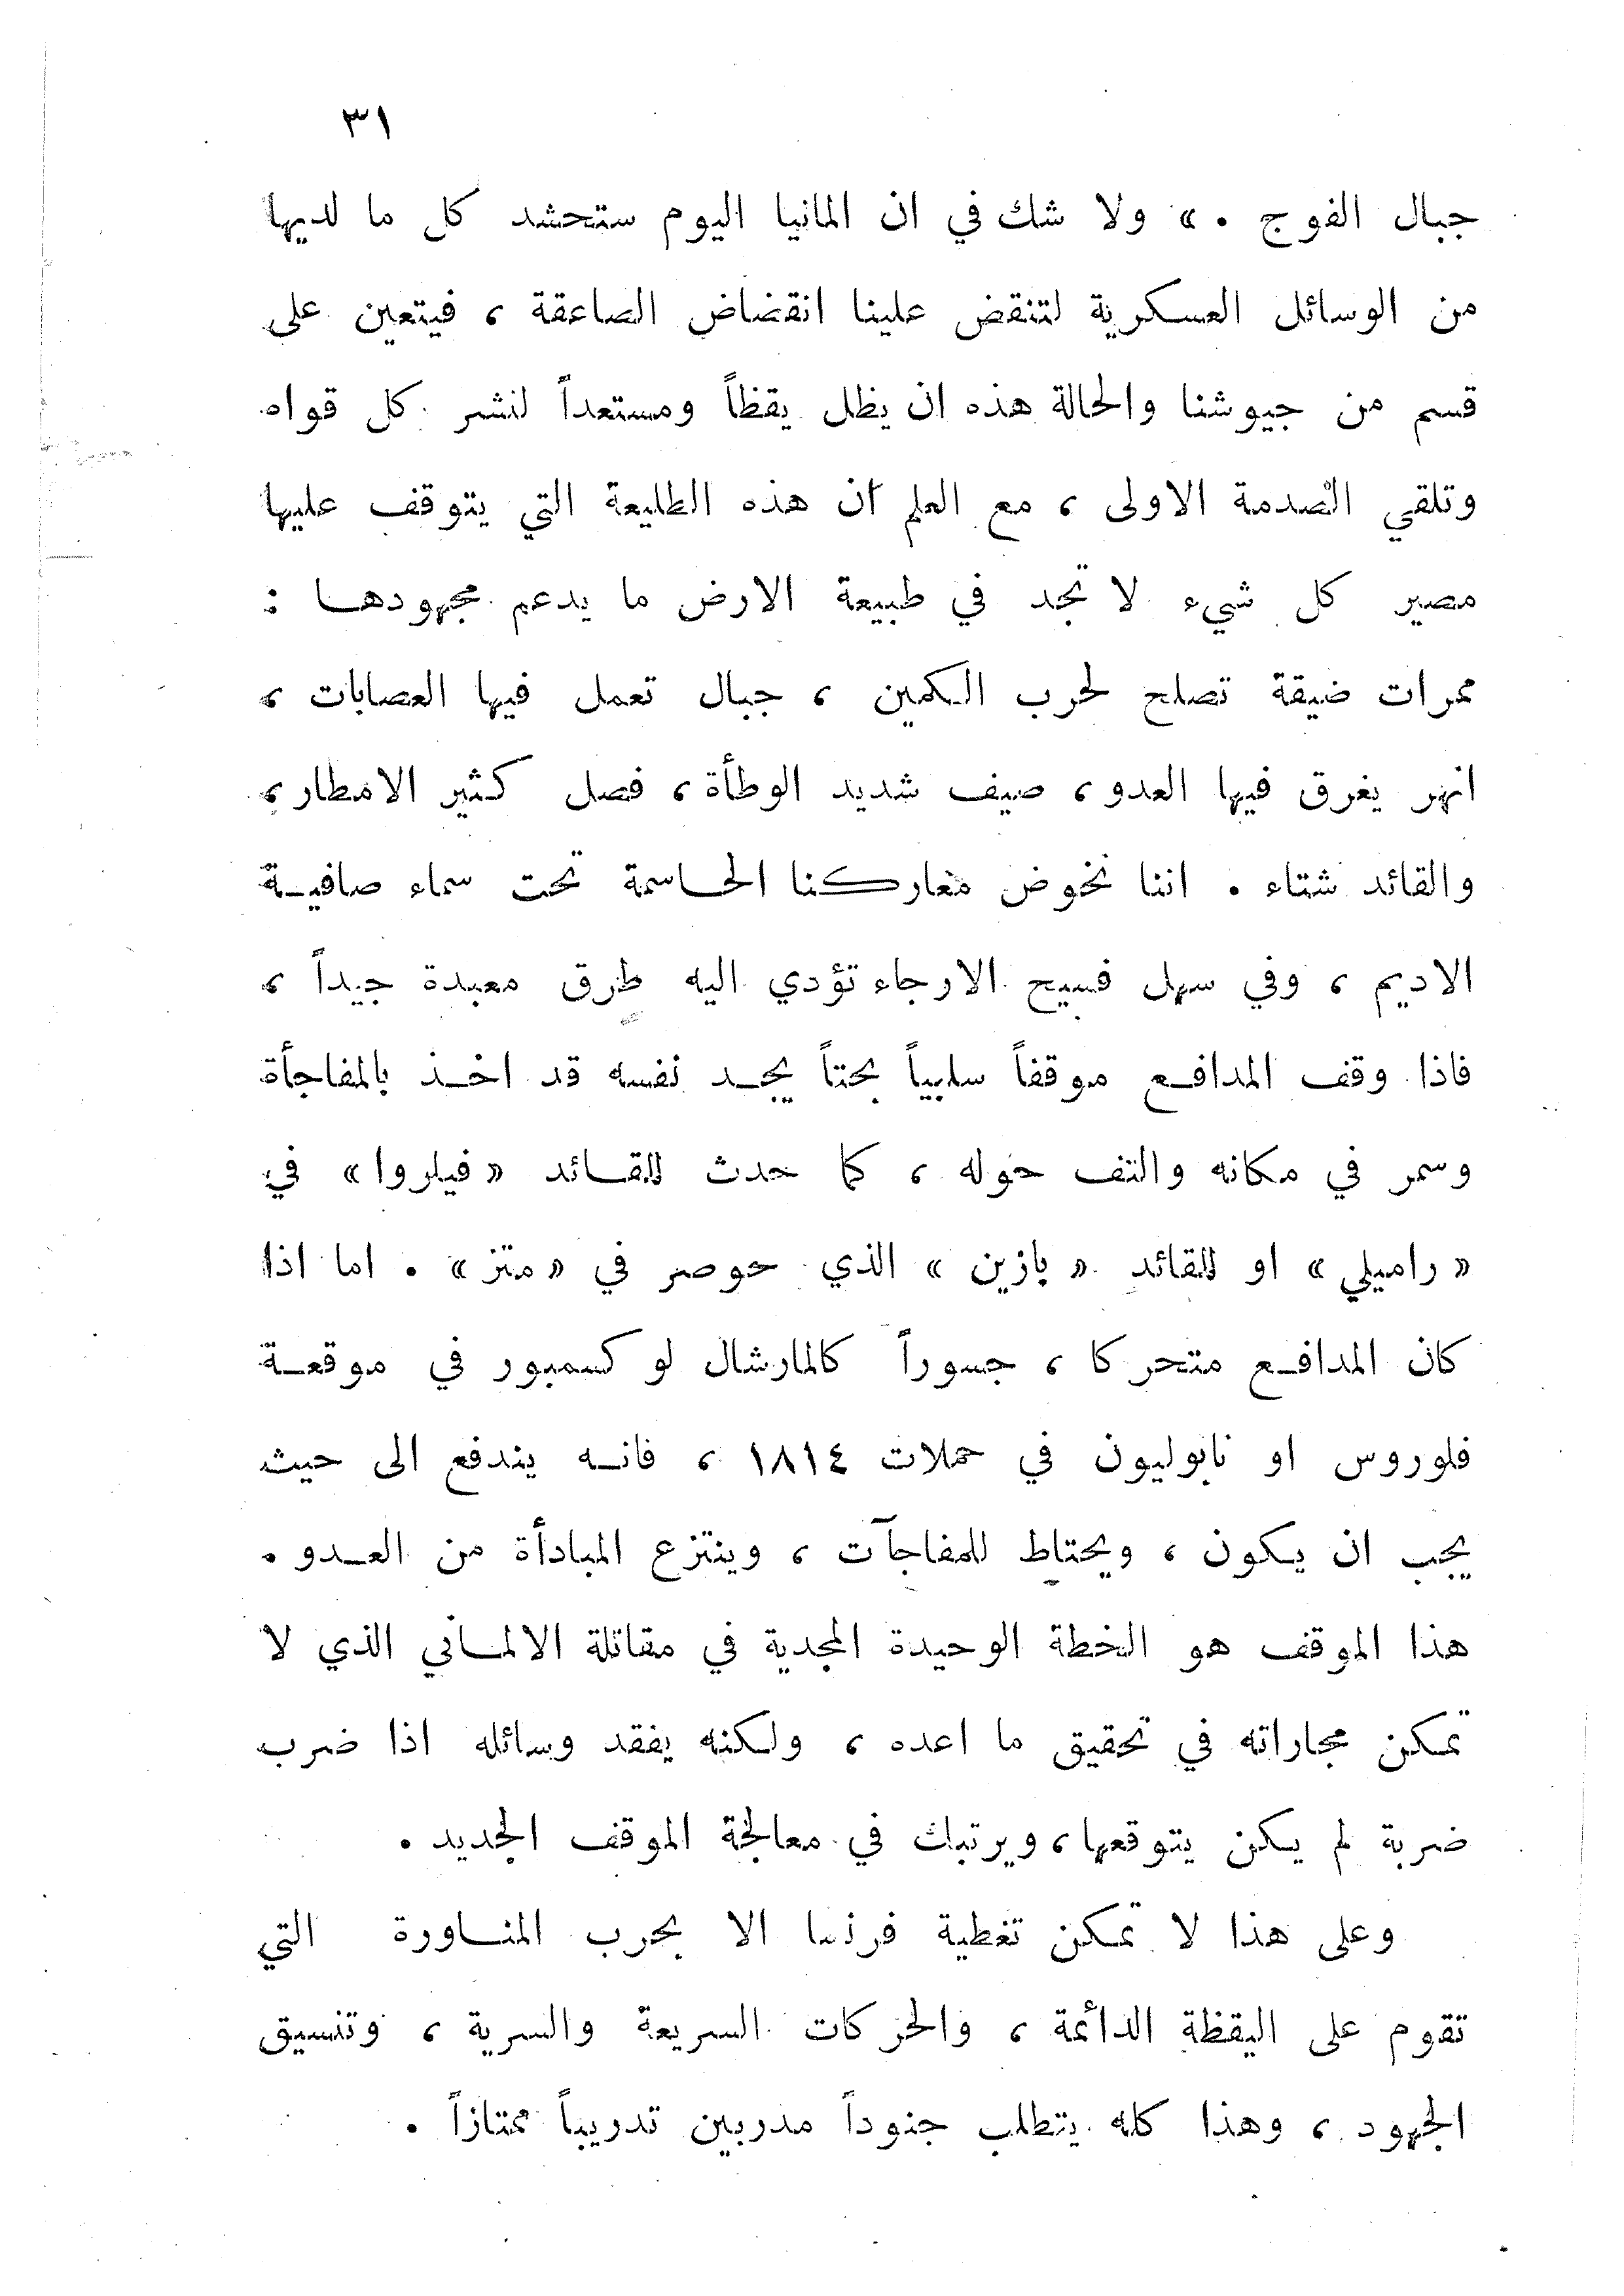 ٣١
جبال الفوج . » ولا شك في ان المانيا اليوم ستحشد كل ما لديها
من الوسائل العسكرية لتنقض علينا انقضاض الصاعقة ، فيتعين على
قسم من جيوشنا والحالة هذه ان يظل يقظاً ومستعداً لنشر كل قواه
وتلقي الصدمة الاولى ، مع العلم ان هذه الطليعة التي يتوقف عليها
مصير كل شيء لا تجد في طبيعة الارض ما يدعم مجهودها :
ممرات ضيقة تصلح لحرب الكمين ، جبال تعمل فيها العصابات ،
انهر يغرق فيها العدو ، صيف شديد الوطأة ، فصل كثير الامطار ،
والقائد شتاء . اننا نخوض معاركنا الحاسمة تحت سماء صافية
الاديم ، وفي سهل فسيح الارجاء تؤدي اليه طرق معبدة جيداً ،
فاذا وقف المدافع موقفاً سلبياً بحتاً يجد نفسه قد اخذ بالمفاجأة
وسمر في مكانه والتف حوله ، كما حدث للقائد « فيلروا » في
« راميلي » او للقائد « بازين » الذي حوصر في « متز » . اما اذا
كان المدافع متحركا ، جسوراً كالمارشال لو كسمبور في موقعة
فلوروس او نابوليون في حملات ١٨١٤ ، فانه يندفع الى حيث
يجب ان يكون ، ويحتاط للمفاجآت ، وينتزع المبادأة من العدو .
هذا الموقف هو الخطة الوحيدة المجدية في مقاتلة الالماني الذي لا
تمكن مجاراته في تحقيق ما اعده ، ولكنه يفقد وسائله اذا ضرب
ضربة لم يكن يتوقعها ، ويرتبك في معالجة الموقف الجديد .
وعلى هذا لا تمكن تغطية فرنسا الا بحرب المناورة التي
تقوم على اليقظة الدائمة ، والحركات السريعة والسرية ، وتنسيق
الجهود ، وهذا كله يتطلب جنوداً مدربين تدريباً ممتازاً .